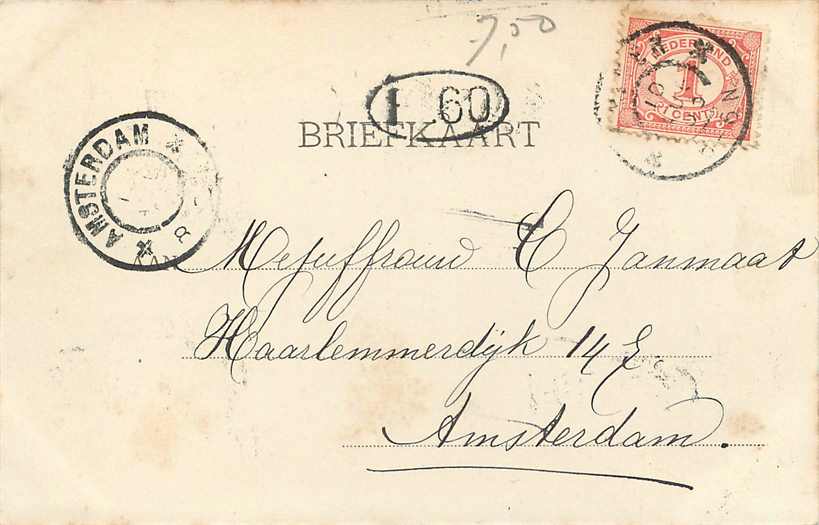 7,50
NEDERLAND
1
CENT
1 60
BRIEFKAART
AMSTERDAM
8
AAN
Mejuffrouw C Janmaat
Haarlemmerdijk 14 E
Amsterdam.